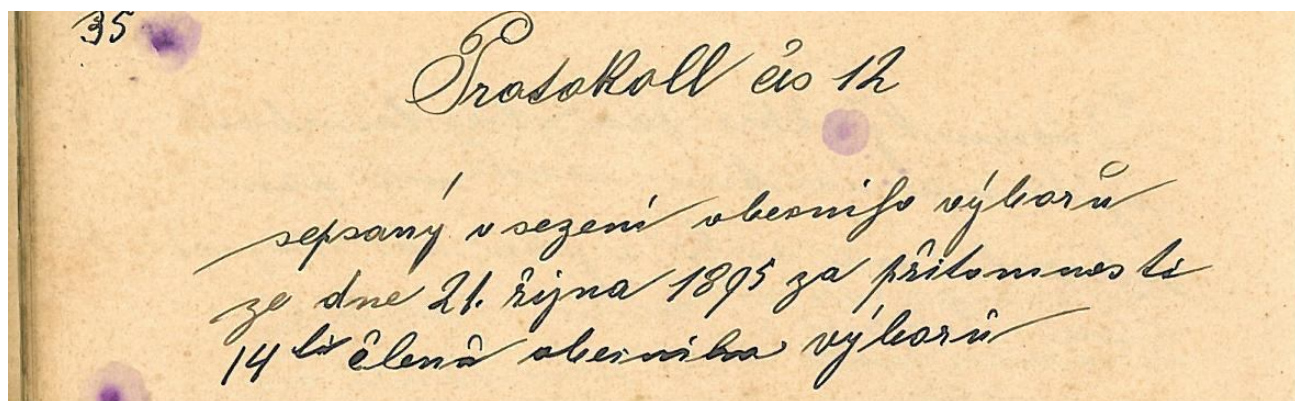 35
Protokoll čís 12
sepsaný v sezení obecního výborů
ze dne 21. října 1895 za přítomnosti
14 ti členů obecního výborů